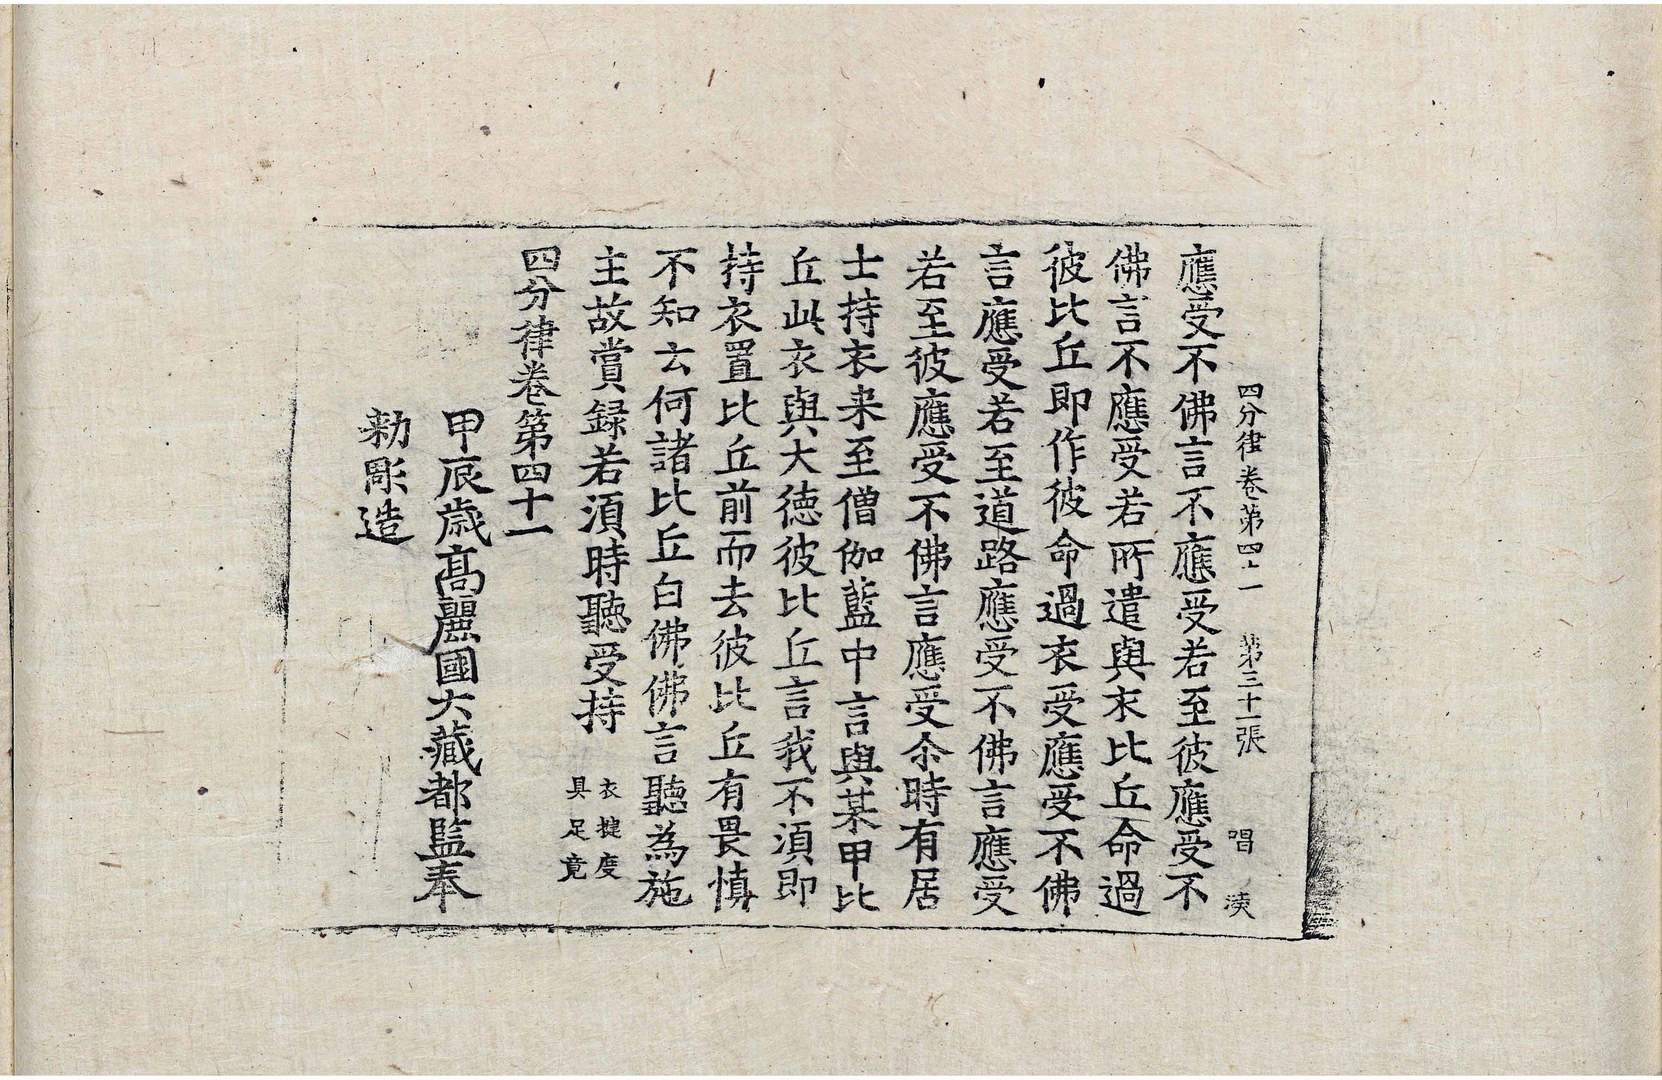 四分律卷第四十一 第三十一張 唱 㳟
應受不佛言不應受若至彼應受不
佛言不應受若所遣與衣比丘命過
彼比丘即作彼命過衣受應受不佛
言應受若至道路應受不佛言應受
若至彼應受不佛言應受尒時有居
士持衣来至僧伽藍中言與某甲比
丘此衣與大德彼比丘言我不湏即
持衣置比丘前而去彼比丘有畏慎
不知云何諸比丘白佛佛言聽為施
主故賞録若湏時聽受持
衣揵度
具足竟
四分律卷第四十一
甲辰歲髙麗國大藏都監奉
勅彫造